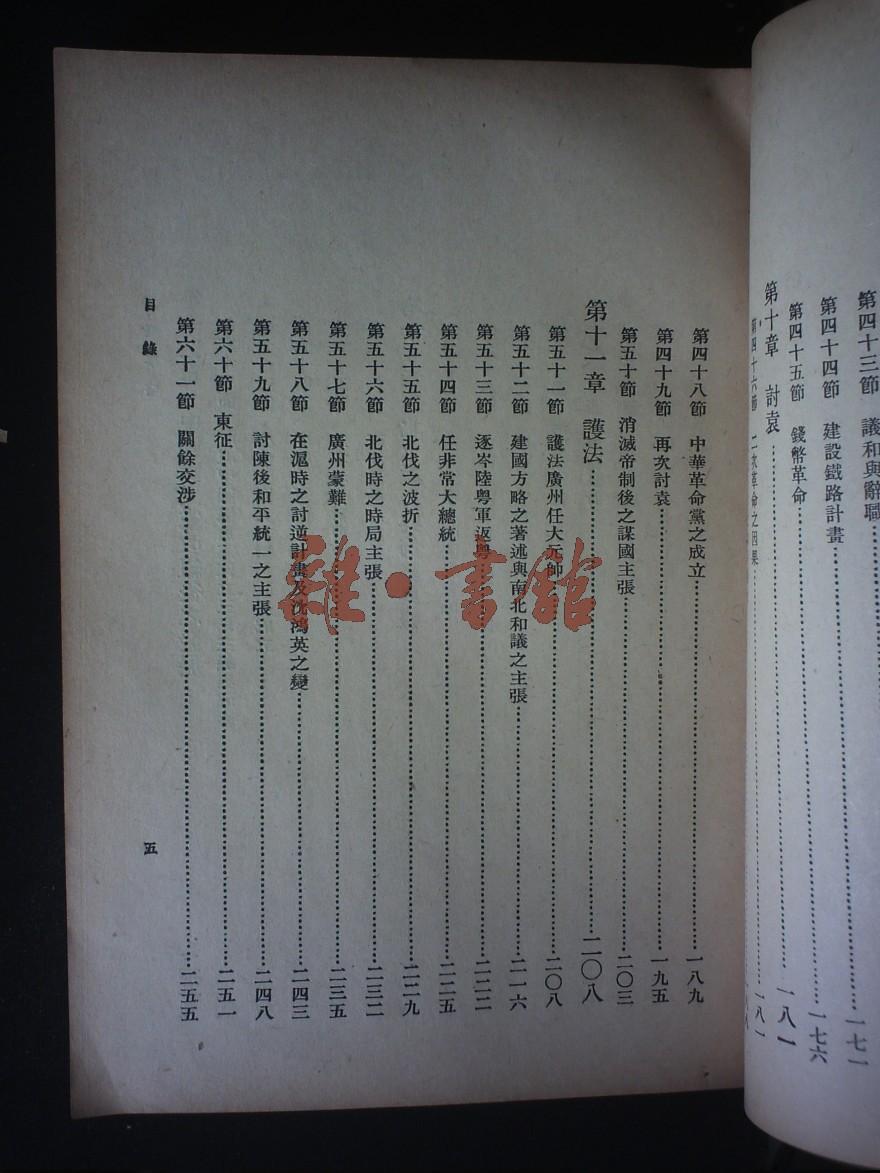 第四十三節　議和與辭職……一七一
第四十四節　建設鐵路計畫……一七六
第四十五節　錢幣革命……
第十章　討袁……一八一
第四十六節　二次革命之因果……一八一
第四十八節　中華革命黨之成立……一八九
第四十九節　再次討袁……一九五
第五十節　消滅帝制後之謀國主張……二〇三
第十一章　護法……二〇八
第五十一節　護法廣州任大元帥……二〇八
第五十二節　建國方略之著述與南北和議之主張……二一六
第五十三節　逐岑陸粵軍返粵……二二二
第五十四節　任非常大總統……二二五
第五十五節　北伐之波折……二二九
第五十六節　北伐時之時局主張……二三二
第五十七節　廣州蒙難……二三五
第五十八節　在滬時之討逆計畫及沈鴻英之變……二四三
第五十九節　討陳後和平統一之主張……二四八
第六十節　東征……二五一
第六十一節　關餘交涉……二五五
目錄
五
雜·書館